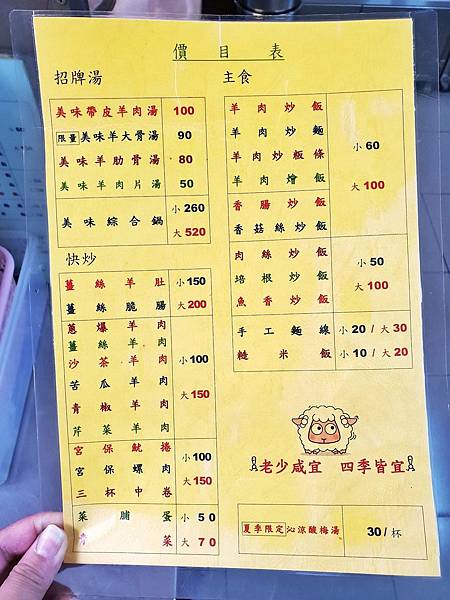 價目表
招牌湯
美味帶皮羊肉湯 100
限量 美味羊大骨湯 90
美味羊肋骨湯 80
美味羊肉片湯 50
美味綜合鍋 小260 大520
快炒
薑絲羊肚 小150
薑絲脆腸 大200
蔥爆羊肉
薑絲羊肉
沙茶羊肉 小100
苦瓜羊肉
青椒羊肉 大150
芹菜羊肉
宮保魷捲 小100
宮保螺肉
三杯中卷 大150
菜脯蛋 小50
菜 大70
主食
羊肉炒飯
羊肉炒麵 小60
羊肉炒粄條
羊肉燴飯 大100
香腸炒飯
香菇絲炒飯
肉絲炒飯 小50
培根炒飯
魚香炒飯 大100
手工麵線 小20/大30
糙米飯 小10/大20
老少咸宜 四季皆宜
夏季限定 沁涼酸梅湯 30/杯